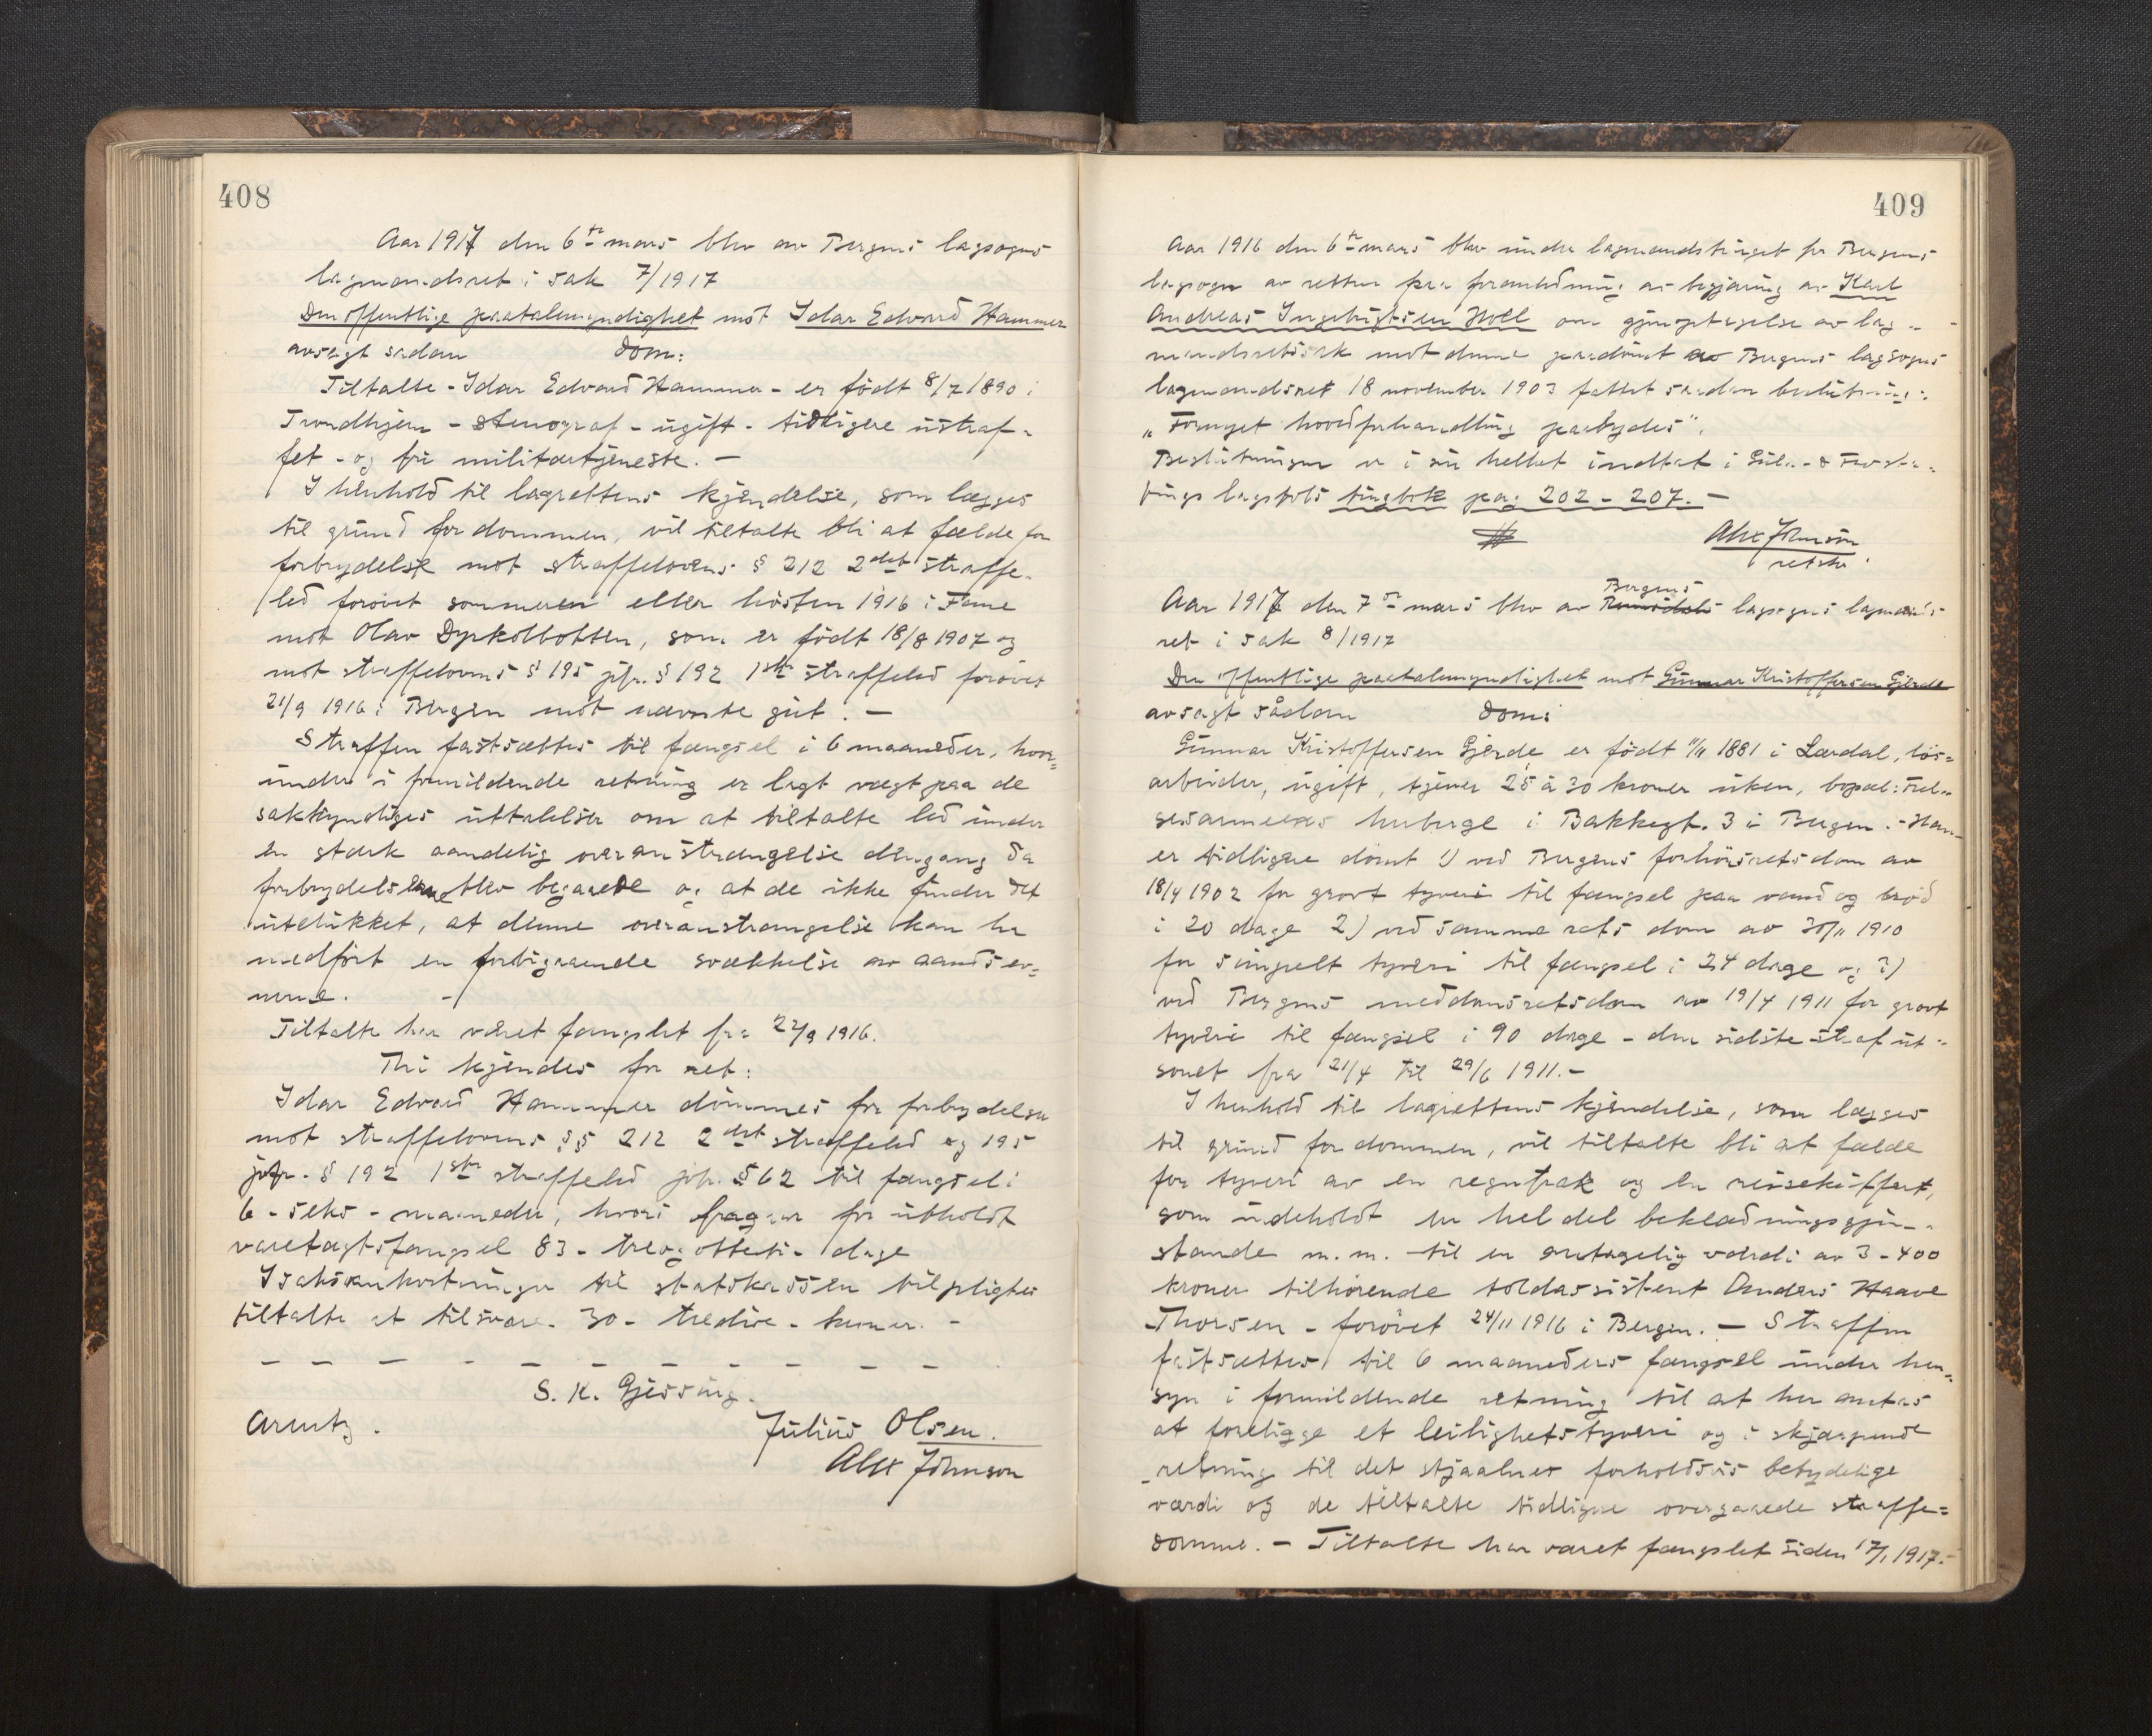 408
Aar 1917 den 6te mars blev av Bergens lagsogns
lagmandsret i sak 7/1917
Den offentlige paatalemyndighet mot Idar Edvard Hammer
avsagt sadan dom:
Tiltalte - Idar Edvard Hammer - er födt 8/7 1890 i
Trondhjem - stenograf - ugift - tidligere ustraf-
fet - og fri militærtjeneste. -
I henhold til lagrettens kjendelse, som lægges
til grund for dommen, vil tiltalte bli at fælde for
forbrydelse mot straffelovens § 212 2det straffe-
led forövet sommeren eller hösten 1916 i Fane
mot Olav Dyrkolbotten, som er födt 18/8 1907 og
mot straffelovens § 195 jfr. § 192 1ste straffeled forövet
21/9 1916 i Bergen mot nævnte gut. -
Straffen fastsættes til fængsel i 6 maaneder, hvor-
under i formildende retning er lagt vægt paa de
sakkyndiges uttalelser om at tiltalte led under
en stærk aandelig overanstrængelse dengang da
forbrydelserne blev begaaede og at de ikke finder det
utelukket, at denne overanstrængelse kan ha
medfört en forbigaaende svækkelse av aandsev-
nerne. -
Tiltalte har været fængslet fra 22/9 1916.
Thi kjendes for ret:
Idar Edvard Hammer dömmes for forbrydelse
mot straffelovens §§ 212 2det straffeled og 195
jvfr. § 192 1ste straffeled jvfr. § 62 til fængsel i
6 - seks - maaneder, hvori fragaar for utholdt
varetægtsfængsel 83 - treogotteti - dage
I saksomkostninger til statskassen tilpligtes
tiltalte at tilsvare 30 - tredive - kroner. -
S. K. Gjessing.
Arentz.
Julius Olsen.
Alex Johnson
409
Aar 1916 den 6te mars blev under lagmandstinget for Bergens
lagsogn av retten paa foranledning av begjæring av Karl
Andreas Ingebrigtsen Holl om gjenoptagelse av lag-
mandsretssak mot denne paadömt av Bergens lagsogns
lagmandsret 18 november 1903 fattet saadan beslutning:
"Fornyet hovedforhandling paabydes".
Beslutningen er i sin helhet indtat i Gula- & Frosta-
tings lagstols tingbok pag 202 - 207. -
Alex Johnson
retskr.
Aar 1917 den 7de mars blev av Bergens Romsdals lagsogns lagmands-
ret i sak 8/1917
Den offentlige paatalemyndighet mot Gunnar Kristoffersen Gjerde
avsagt sådan dom:
Gunnar Kristoffersen Gjerde er födt 11/11 1881 i Lærdal, lös-
arbeider, ugift, tjener 25 à 30 kroner uken, bopæl: Frel-
sesarmeens herberge i Bakkegt. 3 i Bergen. - Han
er tidligere dömt 1) ved Bergens forhörsretsdom av
18/4 1902 for grovt tyveri til fængsel paa vand og bröd
i 20 dage 2) ved samme rets dom av 30/11 1910
for simpelt tyveri til fængsel i 24 dage og 3)
ved Bergens meddomsretsdom av 19/4 1911 for grovt
tyveri til fængsel i 90 dage - den sidste straf ut-
sonet fra 21/4 til 29/6 1911. -
I henhold til lagrettens kjendelse, som lægges
til grund for dommen, vil tiltalte bli at fælde
for tyveri av en regnfrak og en reisekuffert,
som indeholdt en hel del beklædningsgjen-
stande m. m. til en antagelig værdi av 3 - 400
kroner tilhörende toldassistent Anders Haave
Thorsen - forövet 24/11 1916 i Bergen. - Straffen
fastsættes til 6 maaneders fængsel under hen-
syn i formildende retning til at her antas
at foreligge et leilighetstyveri og i skjærpende
retning til det stjaalnes forholdsvis betydelige
værdi og de tiltalte tidligere overgaaede straffe-
domme. - Tiltalte har været fængslet siden 17/1 1917.-